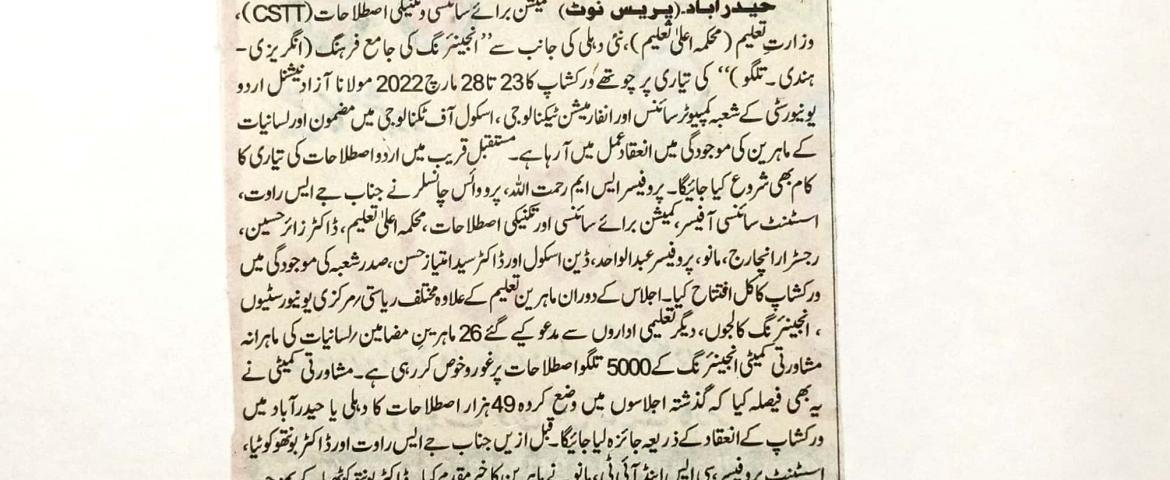 حیدرآباد۔(پریس نوٹ) کمیشن برائے سائنسی و تکنیکی اصطلاحات (CSTT)،
وزارتِ تعلیم (محکمہ اعلیٰ تعلیم)، نئی دہلی کی جانب سے ’’انجینئرنگ کی جامع فرہنگ (انگریزی -
ہندی - تلگو)‘‘ کی تیاری پر چوتھے ورکشاپ کا 23 تا 28 مارچ 2022 مولانا آزاد نیشنل اردو
یونیورسٹی کے شعبہ کمپیوٹر سائنس اور انفارمیشن ٹیکنالوجی، اسکول آف ٹکنالوجی میں مضمون اور لسانیات
کے ماہرین کی موجودگی میں انعقاد عمل میں آرہا ہے۔ مستقبل قریب میں اردو اصطلاحات کی تیاری کا
کام بھی شروع کیا جائیگا۔ پروفیسر ایس ایم رحمت اللہ، پرو وائس چانسلر نے جناب جے ایس راوت،
اسسٹنٹ سائنسی آفیسر، کمیشن برائے سائنسی اور تکنیکی اصطلاحات، محکمہ اعلیٰ تعلیم، ڈاکٹر زائر حسین،
رجسٹرار انچارج، مانو، پروفیسر عبدالواحد، ڈین اسکول اور ڈاکٹر سید امتیاز حسن، صدر شعبہ کی موجودگی میں
ورکشاپ کا کل افتتاح کیا۔ اجلاس کے دوران ماہرین تعلیم کے علاوہ مختلف ریاستی/مرکزی یونیورسٹیوں
، انجینئرنگ کالجوں، دیگر تعلیمی اداروں سے مدعو کیے گئے 26 ماہرینِ مضامین/لسانیات کی ماہرانہ
مشاورتی کمیٹی انجینئرنگ کے 5000 تلگو اصطلاحات پر غور و خوص کر رہی ہے۔ مشاورتی کمیٹی نے
یہ بھی فیصلہ کیا کہ گذشتہ اجلاسوں میں وضع کردہ 49 ہزار اصطلاحات کا دہلی یا حیدرآباد میں
ورکشاپ کے انعقاد کے ذریعہ جائزہ لیا جائیگا۔ قبل ازیں جناب جے ایس راوت اور ڈاکٹر بونتھو کوٹیا،
اسسٹنٹ پروفیسر، سی ایس اینڈ آئی ٹی، مانو نے ماہرین کا خیر مقدم کیا۔ ڈاکٹر